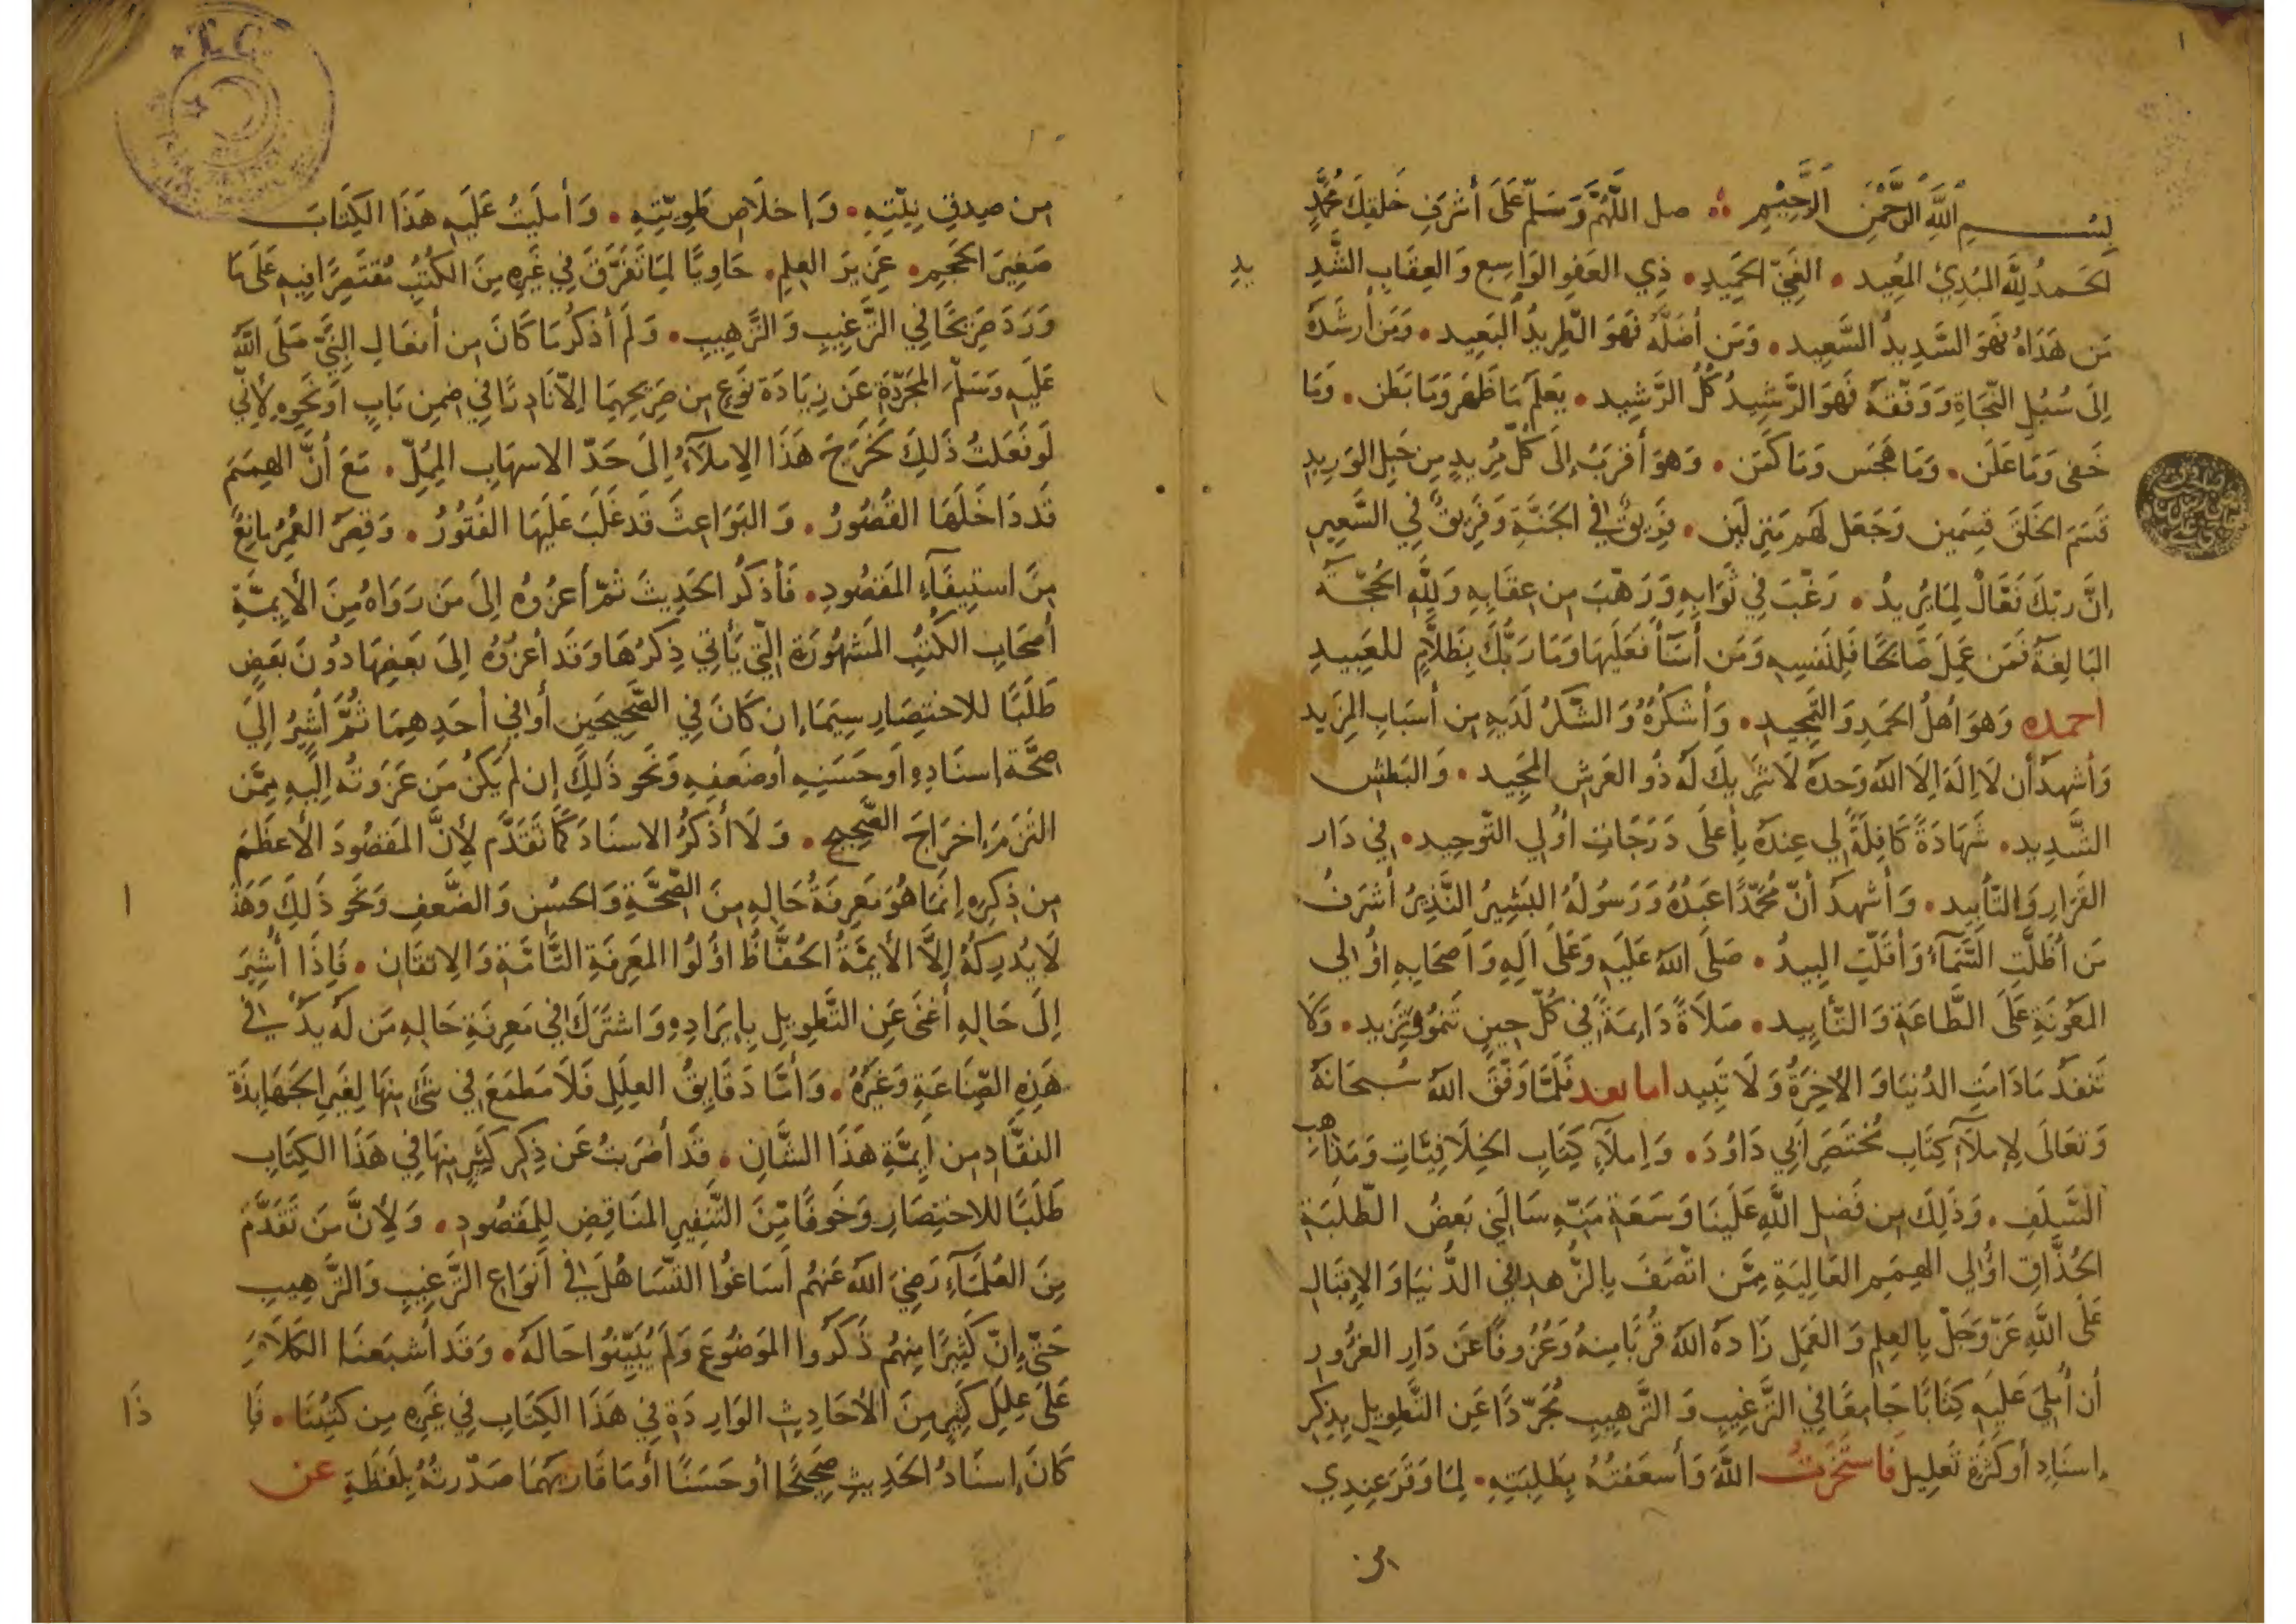 بِسْمِ اللَّهِ الرَّحْمَنِ الرَّحِيمِ صل اللَّهُمَّ وَسَلِّم عَلَى أشرَفِ خَلقِكَ مُحَمَّدٍ
الحَمدُ لِلَّهِ المُبدِئِ المُعِيد • الغَنِيِّ الحَمِيدِ • ذِي العَفوِ الوَاسِعِ وَالعِقَابِ الشَّدِيدِ
مَن هَدَاهُ فَهوَ السَّدِيدُ السَّعِيد • وَمَن أضَلَّهُ فَهوَ الطَّرِيدُ البَعِيد • وَمَن أرشَدَهُ
إلَى سُبُلِ النَّجَاةِ وَوَفَّقَهُ فَهوَ الرَّشِيدُ كُلُّ الرَّشِيد • يَعلَمُ مَا ظَهَرَ وَمَا بَطَن • وَمَا
خَفى وَمَا عَلَن • وَمَا هَجَس وَمَا كَمَن • وَهوَ أقرَبُ إلَى كُلِّ مُرِيدٍ مِن حَبلِ الوَرِيدِ
قَسَمَ الخَلقَ قِسمَين وَجَعَلَ لَهم مَنزِلَتَين • فَرِيقٌ في الجَنَّةِ وَفَرِيقٌ فِي السَّعِيرِ
إنَّ ربّكَ فَعَّالٌ لِمَا يُرِيدُ • رَغَّبَ فِي ثَوَابِهِ وَرَهَّبَ مِن عِقَابِهِ وَلِلَّهِ الحُجَّةُ
البَالِغةُ فَمَن عَمِلَ صَالِحًا فَلِنَفسِهِ وَمَن أسَآءَ فَعَلَيهَا وَمَا رَبُّكَ بِظَلاَّمٍ للعَبِيدِ
احمده وَهوَ أهلُ الحَمدِ وَالتَّمجِيدِ • وَأشكُرُهُ وَالشُّكرُ لَدَيهِ مِن أسبَابِ المَزِيد
وَأشهدُ أن لَا إلَهَ إلَّا اللهُ وَحدَهُ لَا شَرِيكَ لَهُ ذُو العَرشِ المَجِيد • وَالبَطشِ
الشَّدِيد • شَهَادَةً كَافِلَةً لِي عِندَهُ بِأعلَى دَرَجَاتِ أُولِي التَّوحِيدِ • فِي دَارِ
القَرَارِ وَالتَّأبِيد • وَأشهدُ أنَّ مُحَمَّدًا عَبدُهُ وَرَسُولُهُ البَشِيرُ النَّذِيرُ أشرَفُ
مَن أظَلَّتِ السَّمَآءُ وَأقَلَّتِ البِيدُ • صَلَّى اللهُ عَلَيهِ وَعَلَى آلِهِ وَأصحَابِهِ أُولِي
المَعُونَةِ عَلَى الطَّاعَةِ وَالتَّأيِيد • صَلَاةً دَائِمَةً فِي كُلِّ حِينٍ تَنمُو وَتَزِيد • وَلَا
تَنفَدُ مَا دَامَتِ الدُّنيَا وَالآخِرَةُ وَلَا تَبِيد اما بعد فَلَمَّا وَفَّقَ اللهُ سُبحَانَهُ
وَتَعَالَى لإِملآءِ كِتَابِ مُختَصَرِ أبِي دَاوُدَ • وَإملآءِ كِتَابِ الخِلَافِيَّاتِ وَمَذَاهِبِ
السَّلَفِ • وَذَلِكَ مِن فَضلِ اللَّهِ عَلَينَا وَسَعَةِ مَنِّهِ سَألَنِي بَعضُ الطَّلَبَةِ
الحُذَّاقِ أُولِي الهِمَمِ العَالِيَةِ مِمَّن اتَّصَفَ بِالزُّهدِ فِي الدُّنيَا وَالإِقبَالِ
عَلَى اللَّهِ عَزَّ وَجَلَّ بِالعِلمِ وَالعَمَلِ زَادَهُ اللهُ قُربًا مِنهُ وَعُزُوفًا عَن دَارِ الغُرُورِ
أن أُملِيَ عَلَيهِ كِتَابًا جَامِعًا فِي التَّرغِيبِ وَالتَّرهِيبِ مُجَرَّدًا عَنِ التَّطوِيلِ بِذِكرِ
إسنَادٍ أو كَثرَةِ تَعلِيلٍ فَاستَخَرتُ اللَّهَ وَأسعَفتُهُ بِطَلِبَتِهِ • لِمَا وَقَرَ عِندِي
مِن صِدقِ نِيَّتِهِ • وَإخلَاصِ طَوِيَّتِهِ • وَأملَيتُ عَلَيهِ هَذَا الكِتَابَ
صَغِيرَ الحَجمِ • غَزِيرَ العِلمِ • حَاوِيًا لِمَا تَفَرَّقَ فِي غَيرِهِ مِنَ الكُتُبِ مُقتَصِرًا فِيهِ عَلَى مَا
وَرَدَ صَرِيحًا فِي التَّرغِيبِ وَالتَّرهِيبِ • وَلَم أذكُر مَا كَانَ مِن أفعَالِ النَّبِيِّ صَلَّى اللهُ
عَلَيهِ وَسَلَّمَ المُجَرَّدَةِ عَن زِيَادَةِ نَوعٍ مِن صَرِيحِهِمَا إلَّا نَادِرًا فِي ضِمنِ بَابٍ أو نَحوِهِ لأَنِّي
لَو فَعَلتُ ذَلِكَ لَخَرَجَ هَذَا الإِملآءُ إلَى حَدِّ الاسهَابِ المُمِلِّ • مَعَ أنَّ الهِمَمَ
قَد دَاخَلَهَا القُصُورُ • وَالبَوَاعِثَ قَد غَلَبَ عَلَيهَا الفُتُورُ • وَقِصَرُ العُمُرِ مَانِعٌ
مِن استِيفَآءِ المَقصُودِ • فَأذكُرُ الحَدِيثَ ثُمَّ أعزُوهُ إلَى مَن رَوَاهُ مِنَ الأَيِمَّةِ
أصحَابِ الكُتُبِ المَشهُورَةِ الَّتِي يَأتِي ذِكرُهَا وَقَد أعزُوهُ إلَى بَعضِهَا دُونَ بَعضٍ
طَلَبًا للاختِصَارِ سِيَمَا إن كَانَ فِي الصَّحِيحَينِ أو فِي أحَدِهِمَا ثُمَّ أُشِيرُ إلَى
صِحَّةِ إسنَادِهِ أو حَسَنِهِ أو ضَعفِهِ وَنَحوِ ذَلِكَ إن لَم يَكُن مَن عَزَوتُهُ إلَيهِ مِمَّن
التَزَمَ إخرَاجَ الصَّحِيحِ • وَلَا أذكُرُ الاسنَادَ كَمَا تَقَدَّم لأَنَّ المَقصُودَ الأَعظَمَ
مِن ذِكرِهِ إنَّمَا هُوَ مَعرِفَةُ حَالِهِ مِنَ الصِّحَّةِ وَالحُسنِ وَالضَّعفِ وَنَحوِ ذَلِكَ وَهَذَا
لَا يُدرِكُهُ إلَّا الأَيِمَّةُ الحُفَّاظُ أُولُوا المَعرِفَةِ التَّامَّةِ وَالإِتقَانِ • فَإذَا أُشِيرَ
إلَى حَالِهِ أغنَى عَنِ التَّطوِيلِ بِإيرَادِهِ وَاشتَرَكَ فِي مَعرِفَةِ حَالِهِ مَن لَهُ يَدٌ في
هَذِهِ الصِّنَاعَةِ وَغَيرُهُ • وَأمَّا دَقَايِقُ العِلَلِ فَلَا مَطمَعَ فِي شَيءٍ مِنهَا لِغَيرِ الجَهَابِذَةِ
النقَّادِ مِن أيِمَّةِ هَذَا الشَّانِ • قَد أضرَبتُ عَن ذِكرِ كَثِيرٍ مِنهَا فِي هَذَا الكِتَابِ
طَلَبًا للاختِصَارِ وَخَوفًا مِّنَ التَّنفِيرِ المُنَاقِضِ لِلمَقصُودِ • وَلأَنَّ مَن تَقَدَّمَ
مِنَ العُلَمَآءِ رَضِيَ اللهُ عَنهُم أسَاغُوا التَّسَاهُلَ في أنوَاعِ التَّرغِيبِ وَالتَّرهِيبِ
حَتَّى إنَّ كَثِيرًا مِنهُم ذَكَرُوا المَوضُوعَ وَلَم يُبَيِّنُوا حَالَهُ • وَقَد أشبَعنَا الكَلَامَ
عَلَى عِلَلِ كَثِيرٍ مِنَ الأَحَادِيثِ الوَارِدَةِ فِي هَذَا الكِتَابِ فِي غَيرِهِ مِن كُتُبِنَا • فَإذَا
كَانَ إسنَادُ الحَدِيثِ صَحِيحًا أو حَسَنًا أو مَا قَارَبَهُمَا صَدَّرتُهُ بِلَفظَةِ عن